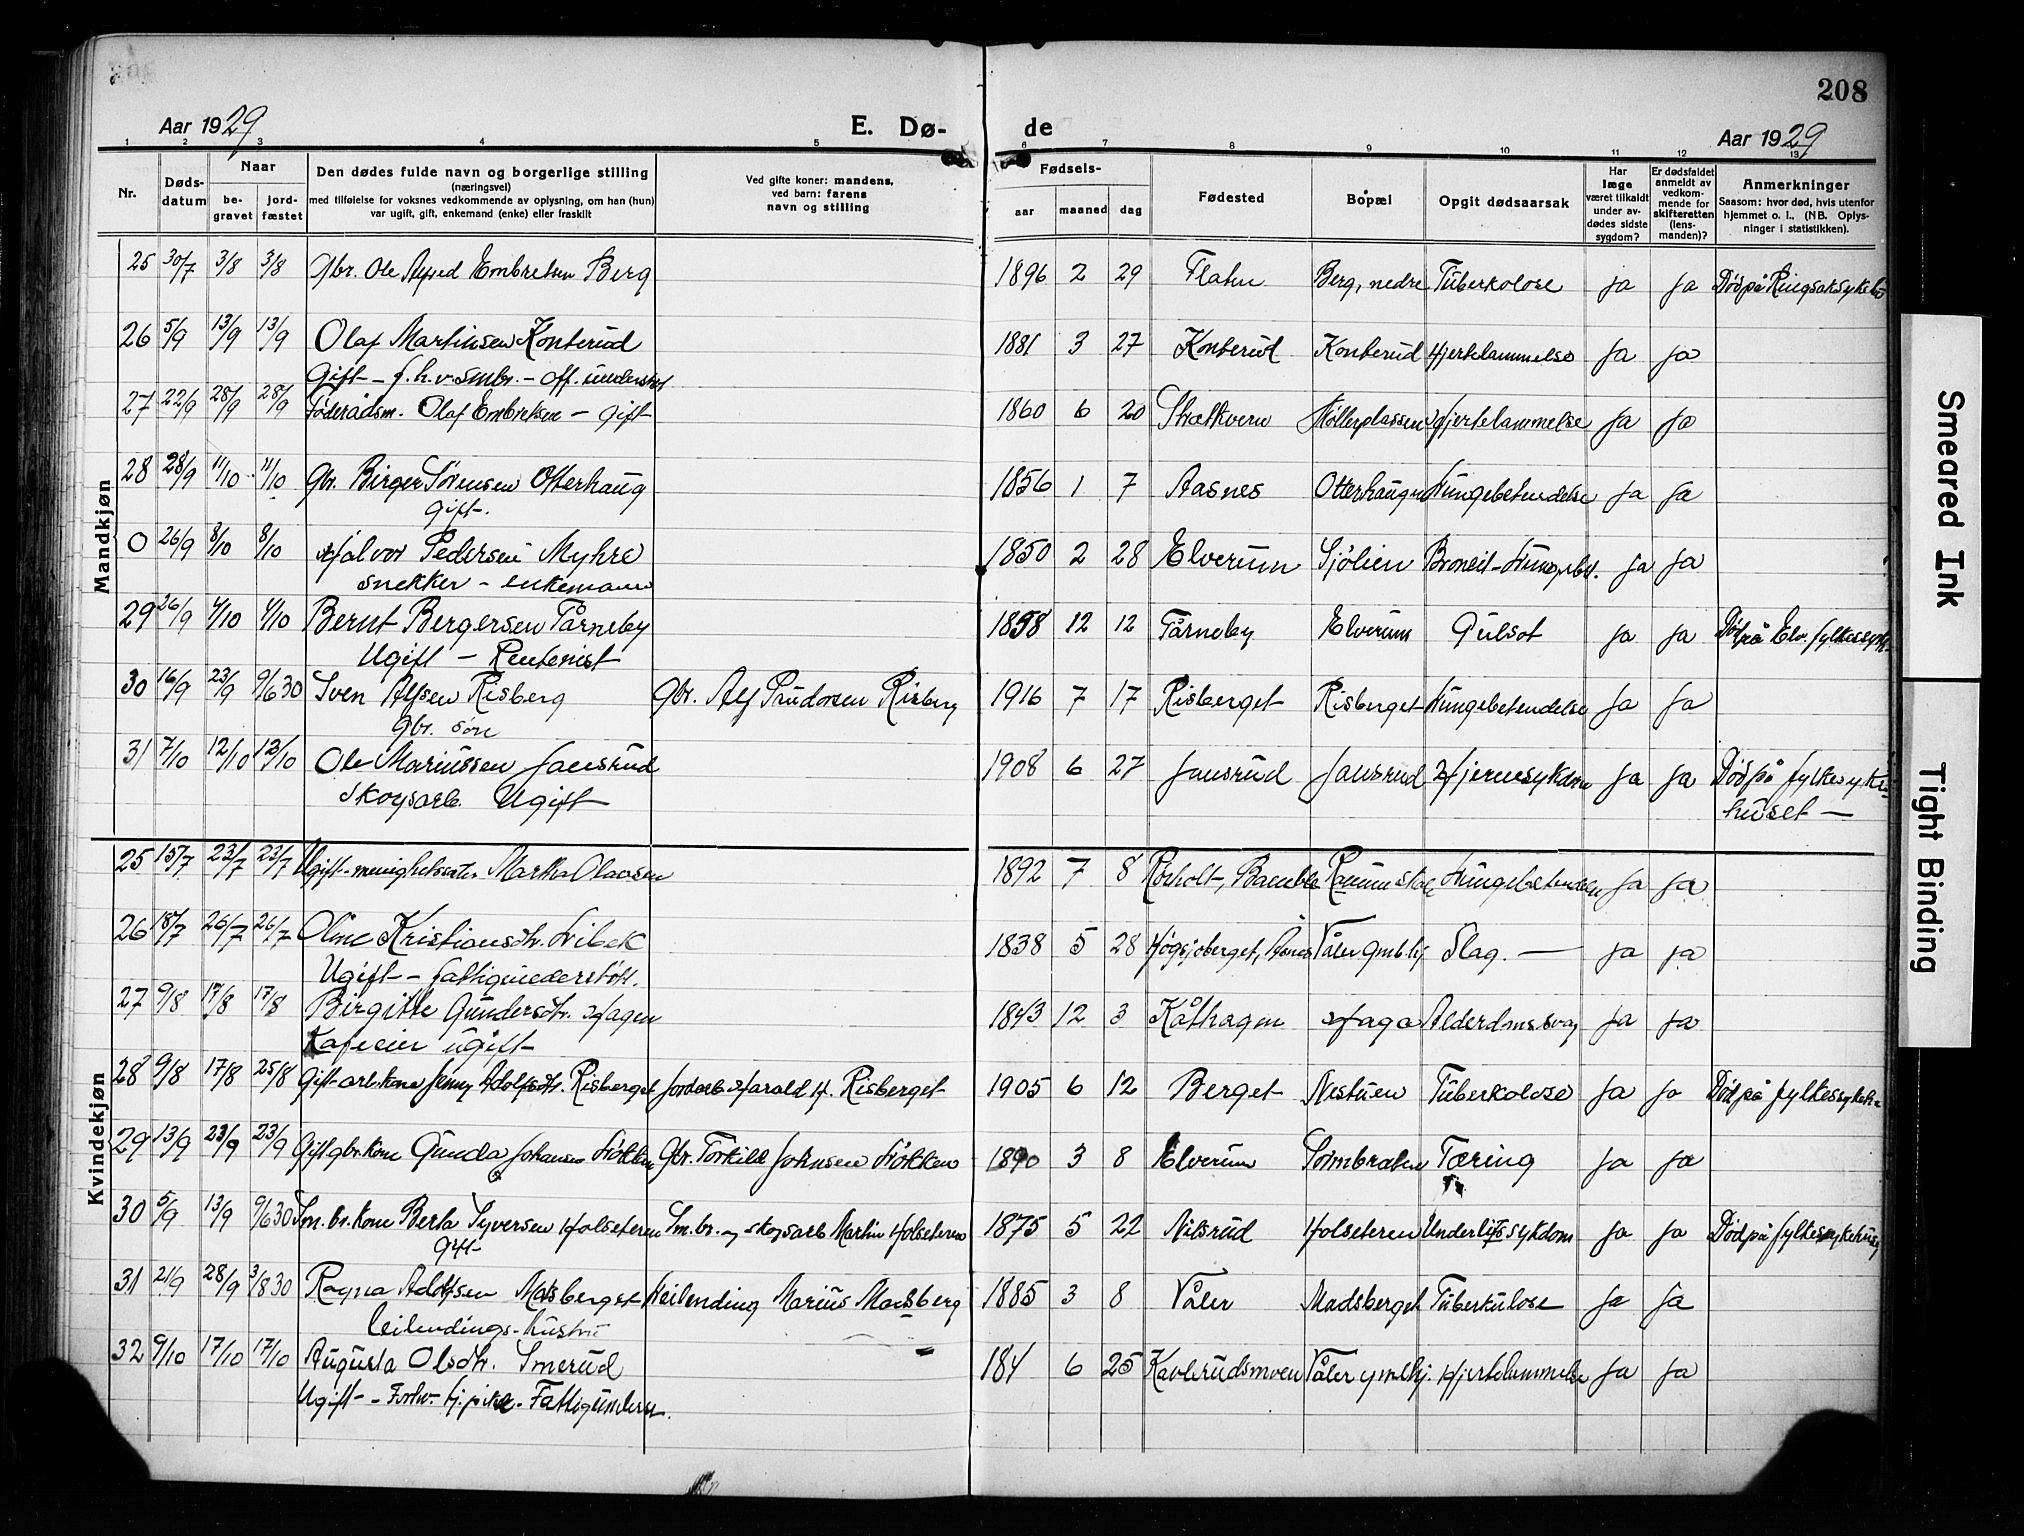 208
Aar 1929 E. Dø- de Aar 1929
1 2 3 4 5 6 7 8 9 10 11 12 13
Nr. Døds-datum Naar be-gravet jord-fæstet
Den dødes fulde navn og borgerlige stilling
(næringsvei)
med tilføielse for voksnes vedkommende av oplysning, om han (hun)
var ugift, gift, enkemand (enke) eller fraskilt
Ved gifte koner: mandens,
ved barn: farens
navn og stilling
Fødsels-
aar maaned dag
Fødested
Bopæl
Opgit dødsaarsak
Har
læge
været tilkaldt
under av-
dødes sidste
sygdom?
Er dødsfaldet
anmeldt av
vedkom-
mende for
skifteretten
(lens-
manden)?
Anmerkninger
Saasom: hvor død, hvis utenfor
hjemmet o. l.. (NB. Oplys-
ninger i statistikken).
Mandkjøn
25 30/7 3/8 3/8 Gbr. Ole Alfred Embretsen Berg 1896 2 29 Flaten Berg, nedre Tuberkolose Ja Ja Død på Ringsaksykeh
26 5/9 13/9 13/9 Olaf Martinsen Konterud 1881 3 27 Konterud Konterud Hjertelammelse Ja Ja
Gift - f.h.v. smbr. - off. understøt
27 22/9 28/9 28/9 Føderådsm. Olaf Embretsen - gift 1860 6 20 Strætkvern Møllerplassen Hjertelammelse Ja Ja
28 28/9 11/10 11/10 Gbr. Birger Sørensen Otterhaug 1856 1 7 Aasnes Otterhaugen Lungebetendelse Ja Ja
gift.
0 26/9 8/10 8/10 Halvor Pedersen Myhre 1850 2 28 Elverum Sjølien Ja Ja
snekker - enkemann
29 26/9 4/10 4/10 Bernt Bergersen Tårneby 1858 12 12 Tårneby Elverum Gulsot Ja Ja Død på Elv. fylkessykh.
Ugift - Rentenist
30 16/9 23/9 9/6 30 Sven Alfsen Risberg Gbr. Alf Risberg 1916 7 17 Risberget Risberget Lungebetendelse Ja Ja
gbr. søn
31 7/10 12/10 12/10 Ole Mariussen Jansrud 1908 6 27 Jansrud Jansrud Hjernesykdom Ja Ja Død på fylkessyke-
Skogsarb. Ugift huset -
Kvindekjøn
25 15/7 23/7 23/7 Ugift - menighetssøster Martha Olavsen 1892 7 8 Rørholt, Bamble Lungebetendelse Ja Ja
26 18/7 26/7 26/7 Oline Kristiansdtr. Libek 1838 5 28 Høgsjøberget, Åsnes Våler gmlhj Slag. - Ja Ja
Ugift - fattigunderstøtt.
27 9/8 17/8 17/8 Birgitte Gundersdtr. Hagen 1843 12 3 Kåthagen Haga Alderdms.svag Ja Ja
Kafeeier ugift -
28 9/8 17/8 25/8 Gift arb.kone Jenny Adolfsdtr. Risberget Jordarb Harald H. Risberget 1905 6 12 Berget Nestuen Tuberkolose Ja Ja Død på fylkessykeh.
29 13/9 23/9 23/9 Gift gbr.kone Gunda Johansen Løkken Gbr. Torkild Johnsen Løkken 1890 3 8 Elverum Sørmbraten Tæring Ja Ja
30 5/9 13/9 9/6 30 Sm.br.kone Berta Syversen Holseteren Sm.br. og skogsarb Martin Holseteren 1875 5 22 Nilsrud Holseteren Underlifssykdom Ja Ja Død på fylkessykehus
Gift -
31 21/9 28/9 3/8 30 Ragna Adolfsen Madsberget Leilending Marius Madsberg 1885 3 8 Våler Madsberget Tuberkulose Ja Ja
leilendings-hustru
32 9/10 17/10 17/10 Augusta Olsdtr. Smerud 184 6 25 Kavlerudsmoen Våler gmlhj. Hjertelammelse Ja Ja
Ugift - - Forhv. tj.pike - Fattigunderst.
Smeared Ink
Tight Binding